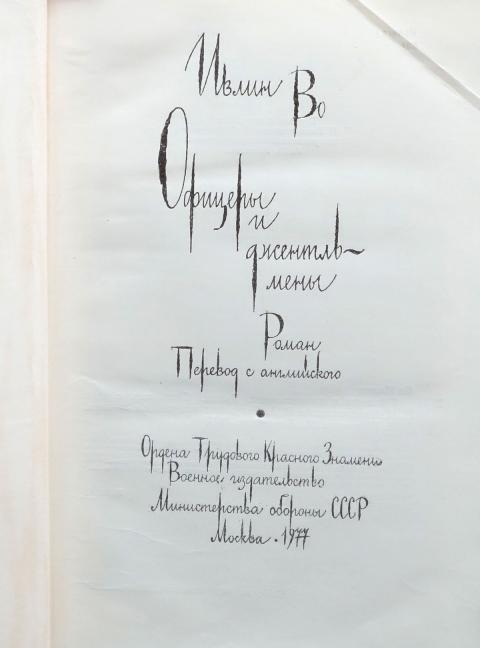 Ивлин Во
Офицеры
и
джентль-
мены
Роман
Перевод с английского
Ордена Трудового Красного Знамени
Военное издательство
Министерства обороны СССР
Москва • 1977